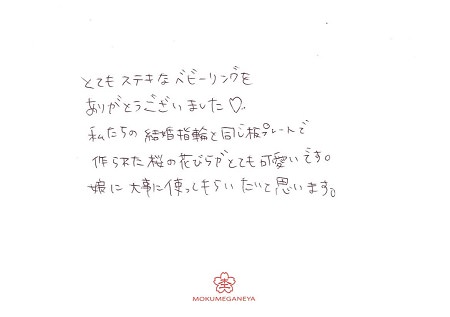 とてもステキなベビーリングを
ありがとうございました♡.
私たちの結婚指輪と同じ板プレートで
作られた桜の花びらがとても可愛いです。
娘に大事に使ってもらいたいと思います。
杢
MOKUMEGANEYA